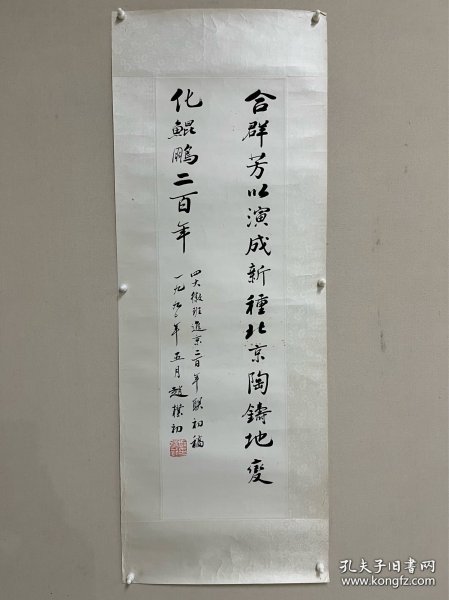 合群芳以演成新種北京陶鑄地變
化鯤鵬二百年
四大徽班進京二百年聯初稿
一九九〇年五月趙樸初
孔夫子旧书网
www.kongfz.com